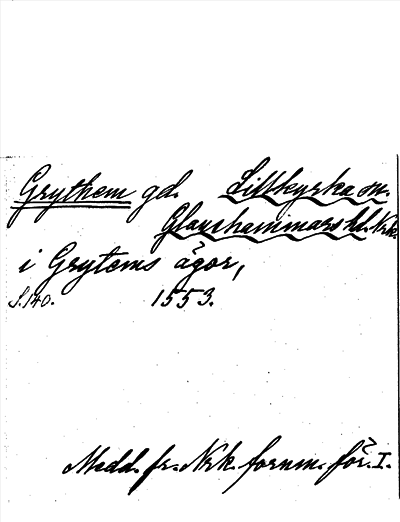 Grythem gd. Lillkyrka sn.
Glanshammars hd. Nrk.
i Grytems ägor,
S. 140. 1553.
Medd. fr. Nrk. fornm. för. I.